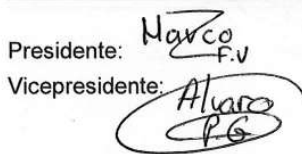 Presidente: Marco F.V
Vicepresidente: Alvaro P.G